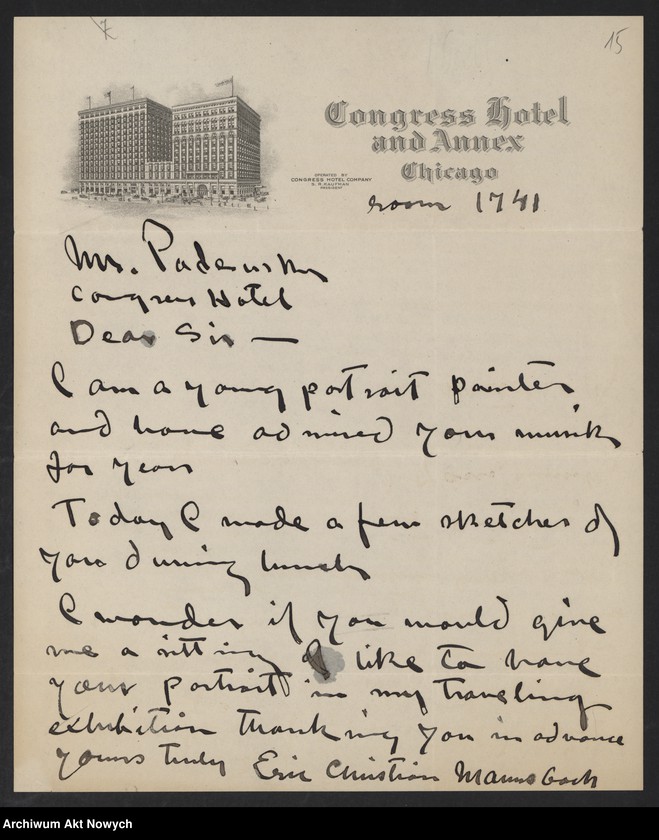 15
Congress Hotel
and Annex
Chicago
OPERATED BY
CONGRESS HOTEL COMPANY
S. R. KAUFMAN
PRESIDENT
room 1741
Mr. Paderewsky
Congress Hotel
Dear Sir —
I am a young portrait painter
and have admired your musik
for years
Today I made a few sketches of
you during lunch
I wonder if you would give
me a sitting I like to have
your portrait in my traveling
exhibition thanking you in advance
yours truly Eric Christian Maunsbach
Archiwum Akt Nowych